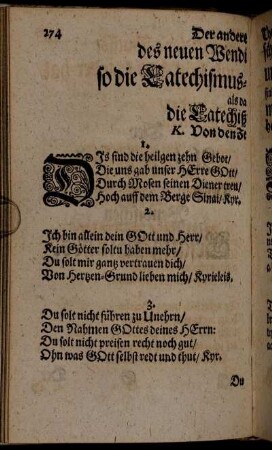 274
Der andere
des neuen Wendi
so die Catechismus-
als da
die Catechiß
K. Von den
1.
DIs sind die heilgen zehn Gebot/
Die uns gab unser HErre GOtt/
Durch Mosen seinen Diener treu/
Hoch auff dem Berge Sinai/ Kyr.
2.
Ich bin allein dein GOtt und Herr/
Kein Götter soltu haben mehr/
Du solt mir gantz vertrauen dich/
Von Hertzen-Grund lieben mich/ Kyrieleis.
3.
Du solt nicht führen zu Unehrn/
Den Nahmen GOttes deines HErrn:
Du solt nicht preisen recht noch gut/
Ohn was GOtt selbst redt und thut/ Kyr.
Du